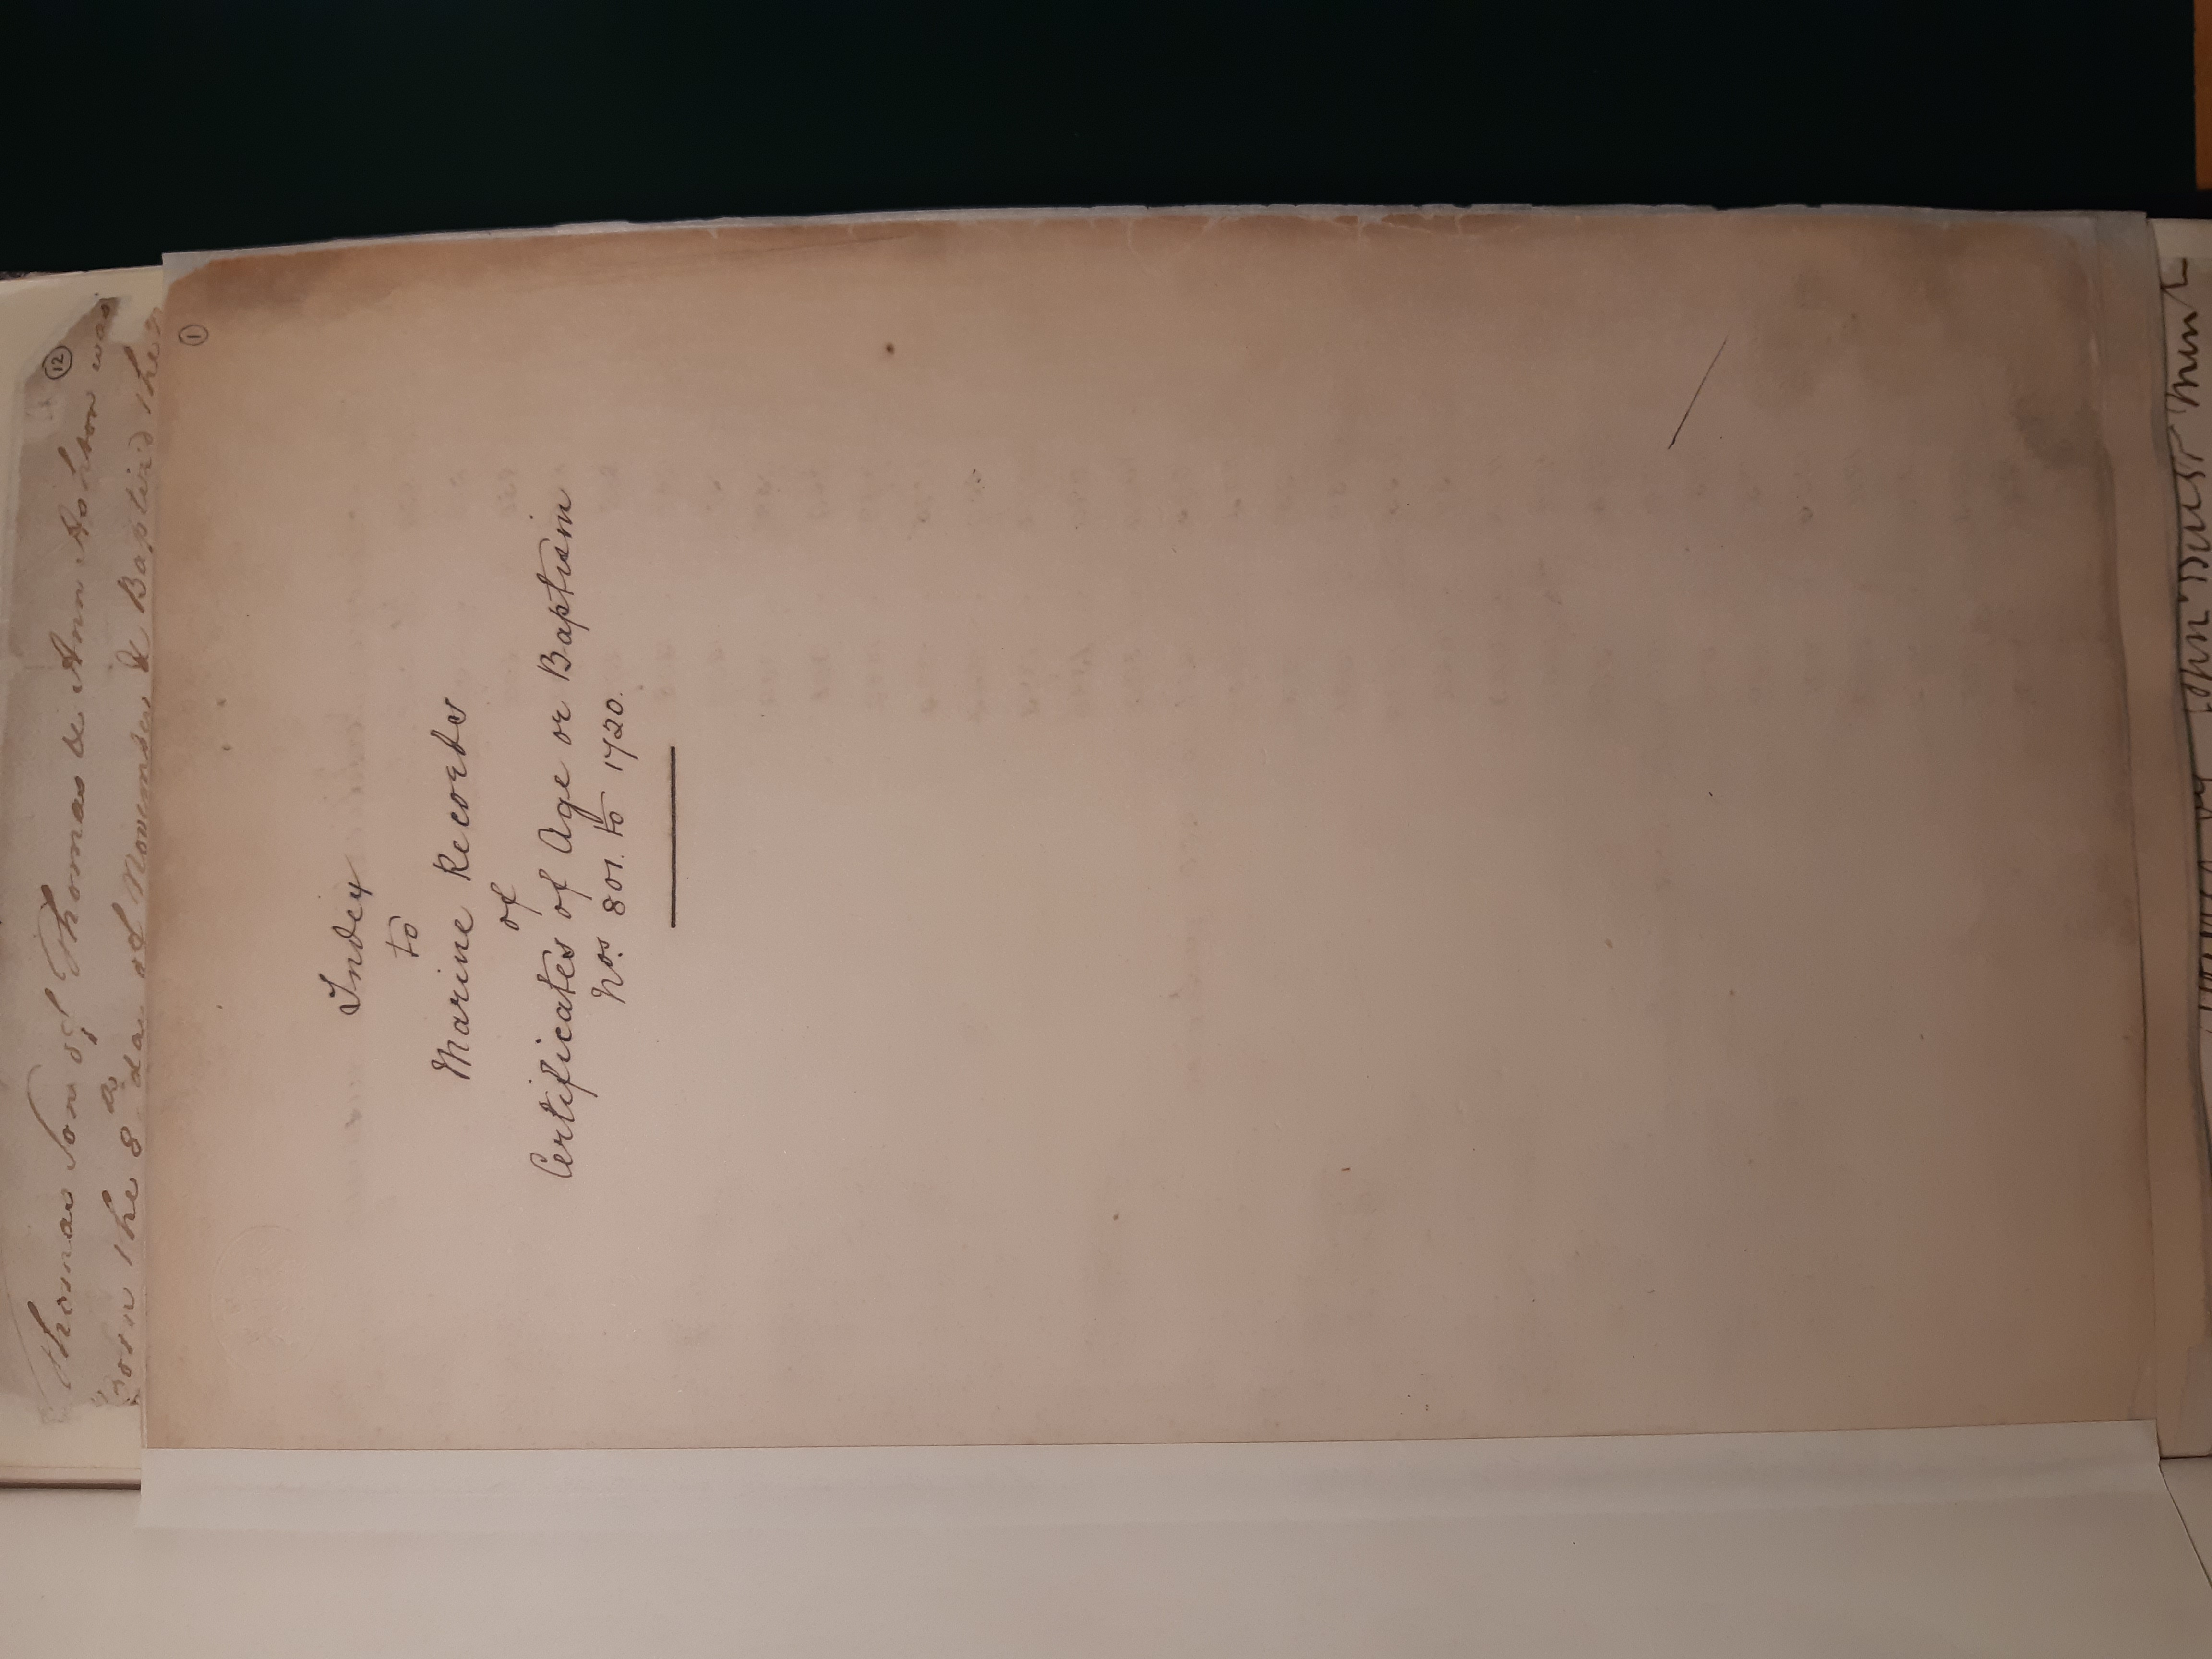 12
Thomas Son of Thomas & Ann Ashton was
Born the 8 day of November & Baptized the
1
Index
to
Marine Records
of
Certificates of Age or Baptism
Nos. 801. to 1720.